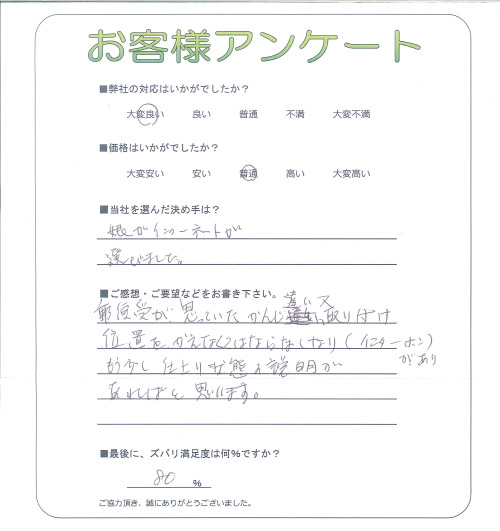 お客様アンケート
■弊社の対応はいかがでしたか？
大変良い 良い 普通 不満 大変不満
■価格はいかがでしたか？
大変安い 安い 普通 高い 大変高い
■当社を選んだ決め手は？
娘がインターネットが
選びました。
■ご感想・ご要望などをお書き下さい。
郵便受が思っていたかんじ違い又取り付け
位置をかえなくてはならなくなり(インターホン
があり)
もう少し仕上り状態の説明が
あればと思います。
■最後に、ズバリ満足度は何％ですか？
80 ％
ご協力頂き、誠にありがとうございました。